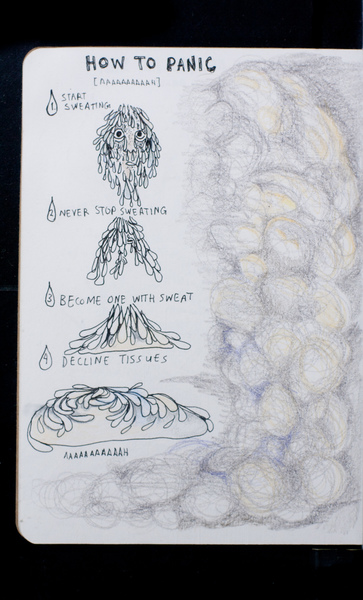 HOW TO PANIC
[AAAAAAAAAAH]
1 START
SWEATING
2 NEVER STOP SWEATING
3 BECOME ONE WITH SWEAT
4 DECLINE TISSUES
AAAAAAAAAAAH